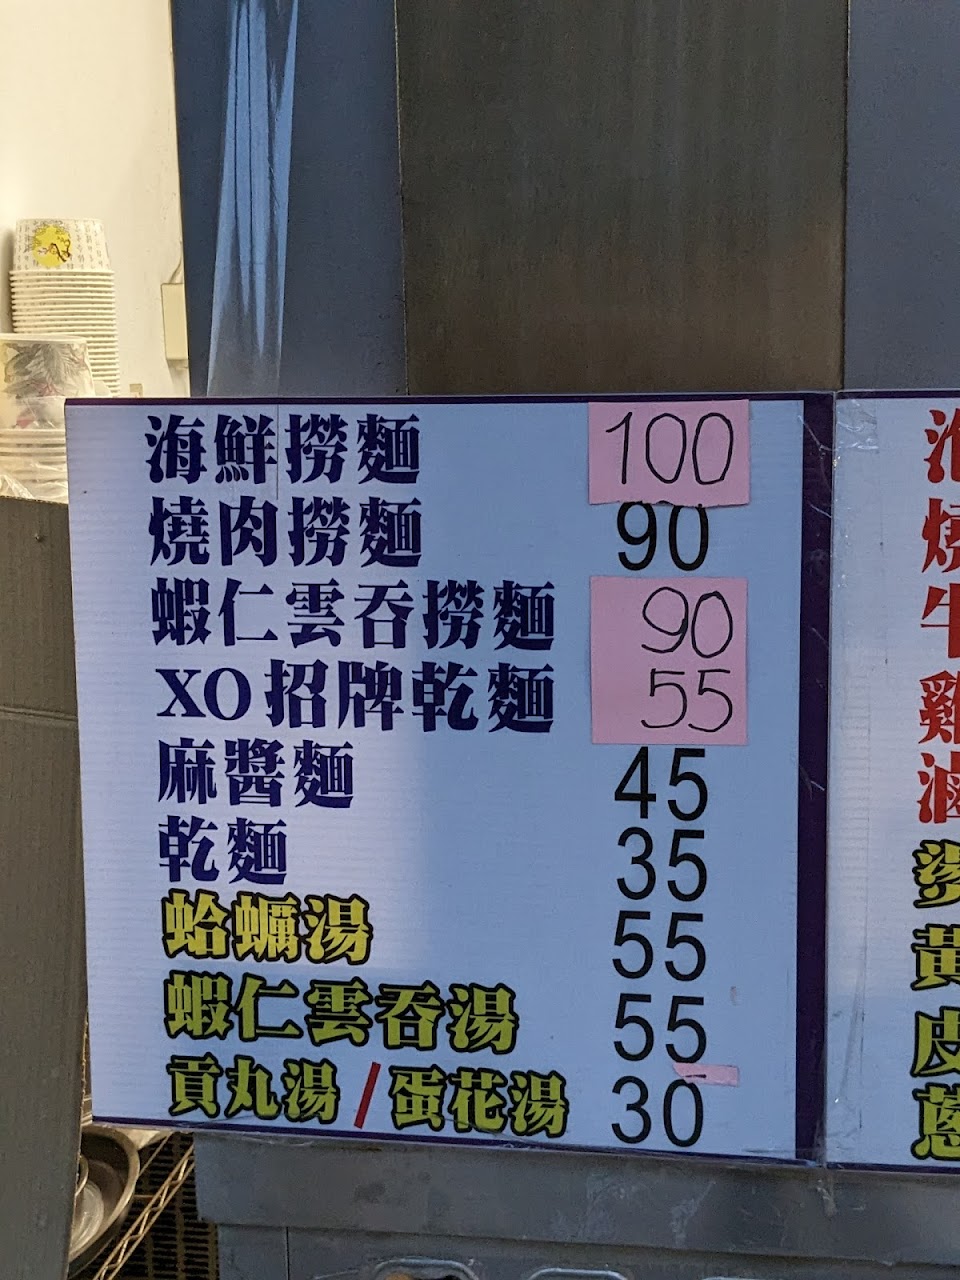 海鮮撈麵 100
燒肉撈麵 90
蝦仁雲吞撈麵 90
XO招牌乾麵 55
麻醬麵 45
乾麵 35
蛤蠣湯 55
蝦仁雲吞湯 55
貢丸湯/蛋花湯 30
燒
牛
雞
滷
黃
皮
蔥